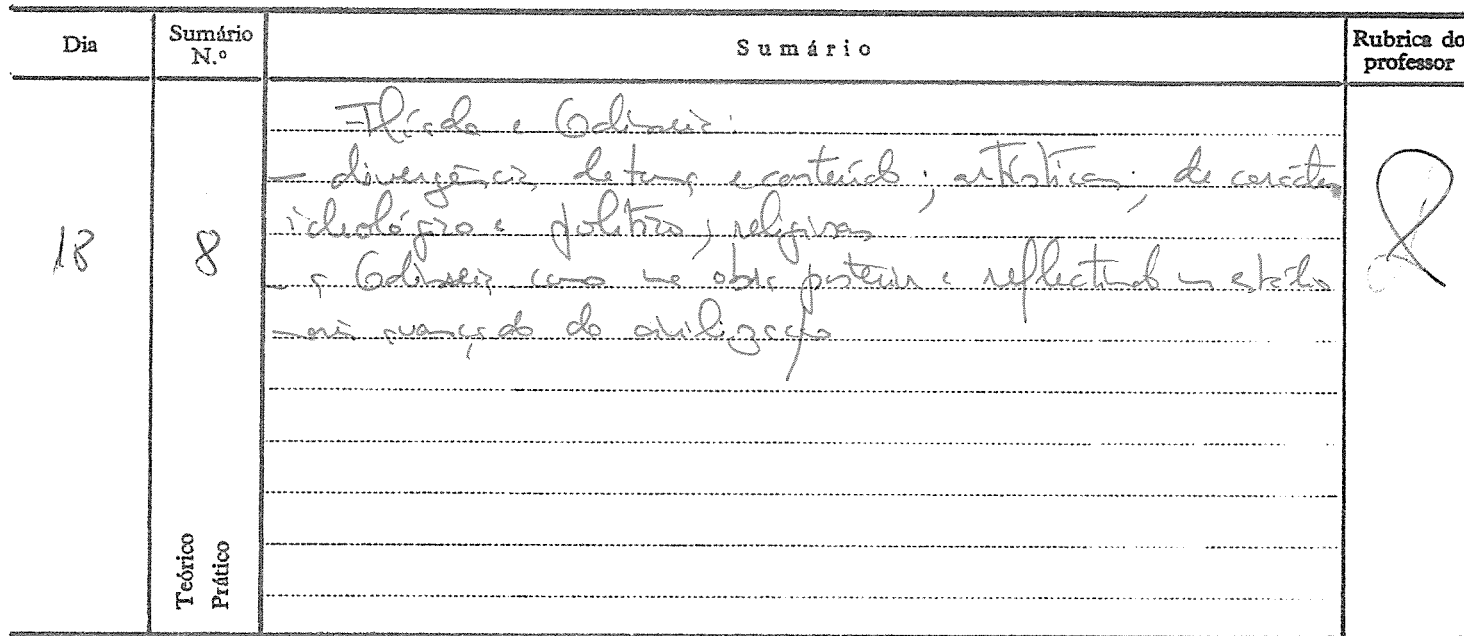 Dia
Sumário N.º
Sumário
Rubrica do professor
18
8
Ilíada e Odisseia:
— divergências de tema e conteúdo; artísticas; de carácter
ideológico e político; religiosas
— a Odisseia como uma obra posterior e reflectindo um estádio
mais avançado da civilização
Teórico
Prático